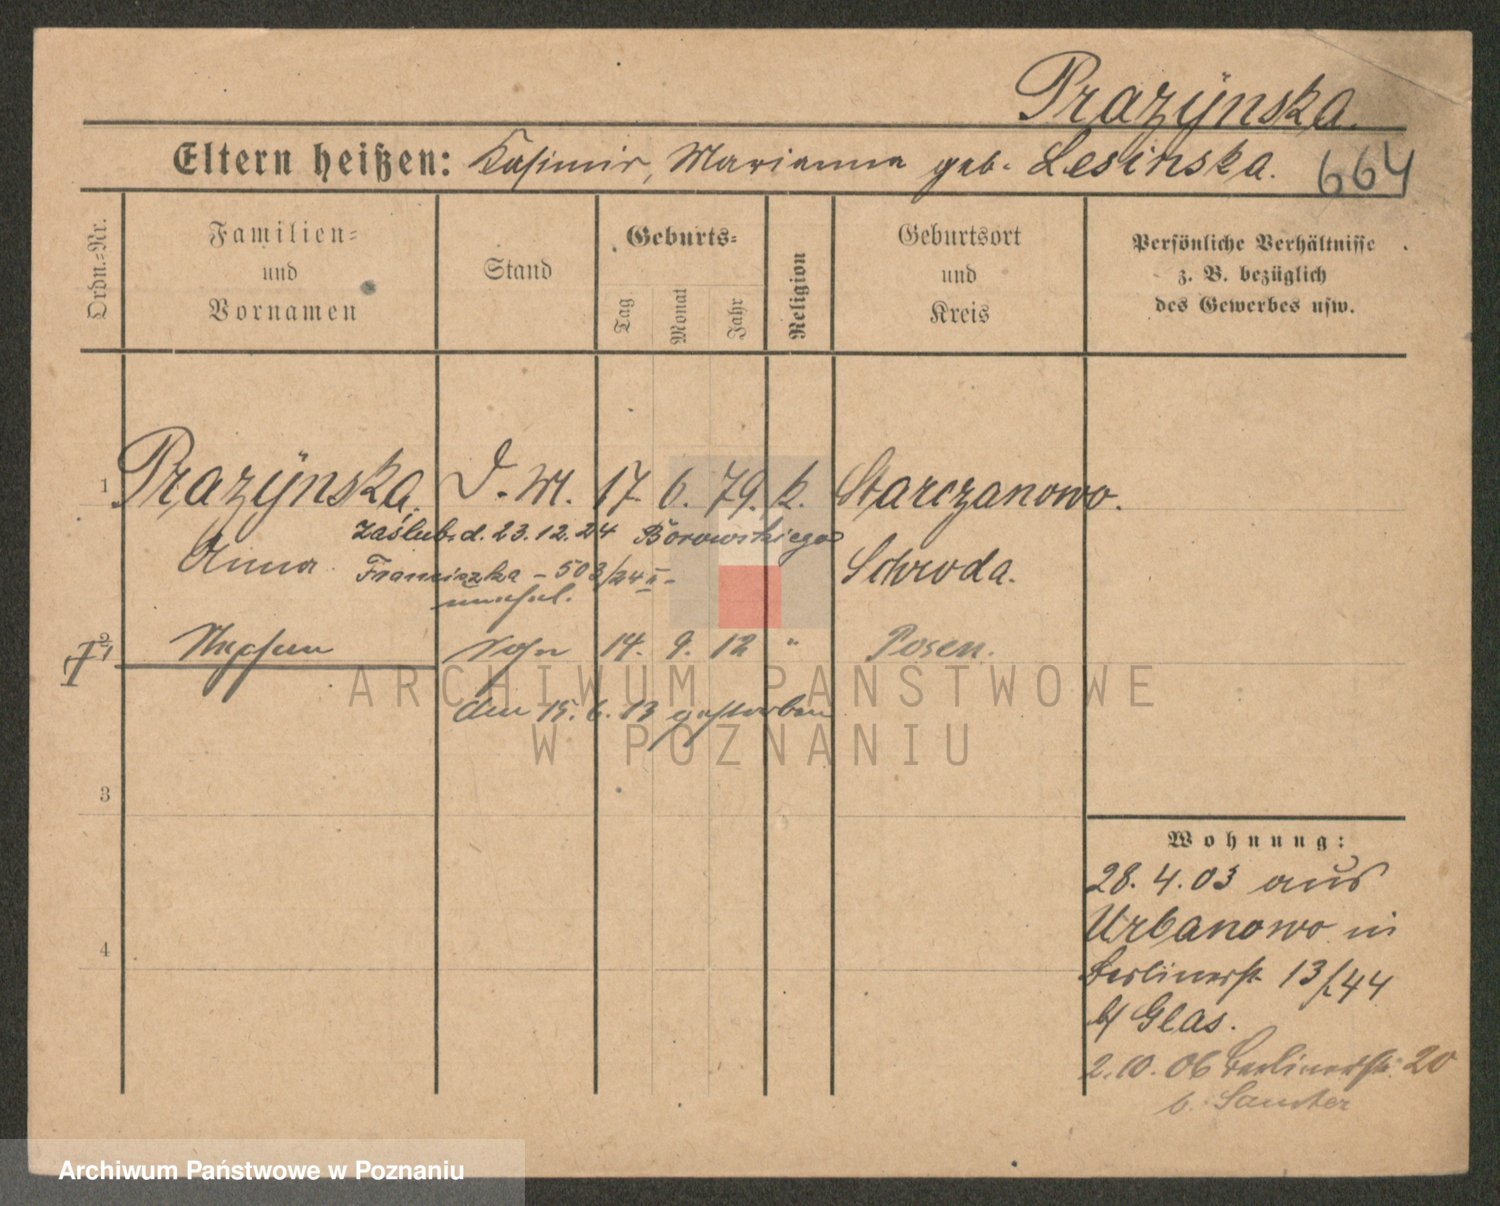 Prazÿnska.
Eltern heißen: Kasimir, Marianna geb. Lesinska. 664
Ordn.=Nr.
Familien=
und
Vornamen
Stand
Geburts=
Tag
Monat
Jahr
Religion
Geburtsort
und
Kreis
Persönliche Verhältnisse
z. B. bezüglich
des Gewerbes usw.
1 Prazÿnska D. M. 17. 6. 79. k. Starczanowo.
Zaślub. d. 23.12.24 Borowskiego
Anna Schroda.
Franciszka - 503/24 II -
unehel.
2 Sohn 14. 9. 12 " Posen.
1
den 15. 6. 13 gestorben
ARCHIWUM PAŃSTWOWE
W POZNANIU
3
4
Wohnung:
28. 4. 03 aus
Urbanowo in
Berlinerstr 13/44
b/ Glas.
2. 10. 06 Berlinerstr. 20
b. Samter
Archiwum Państwowe w Poznaniu